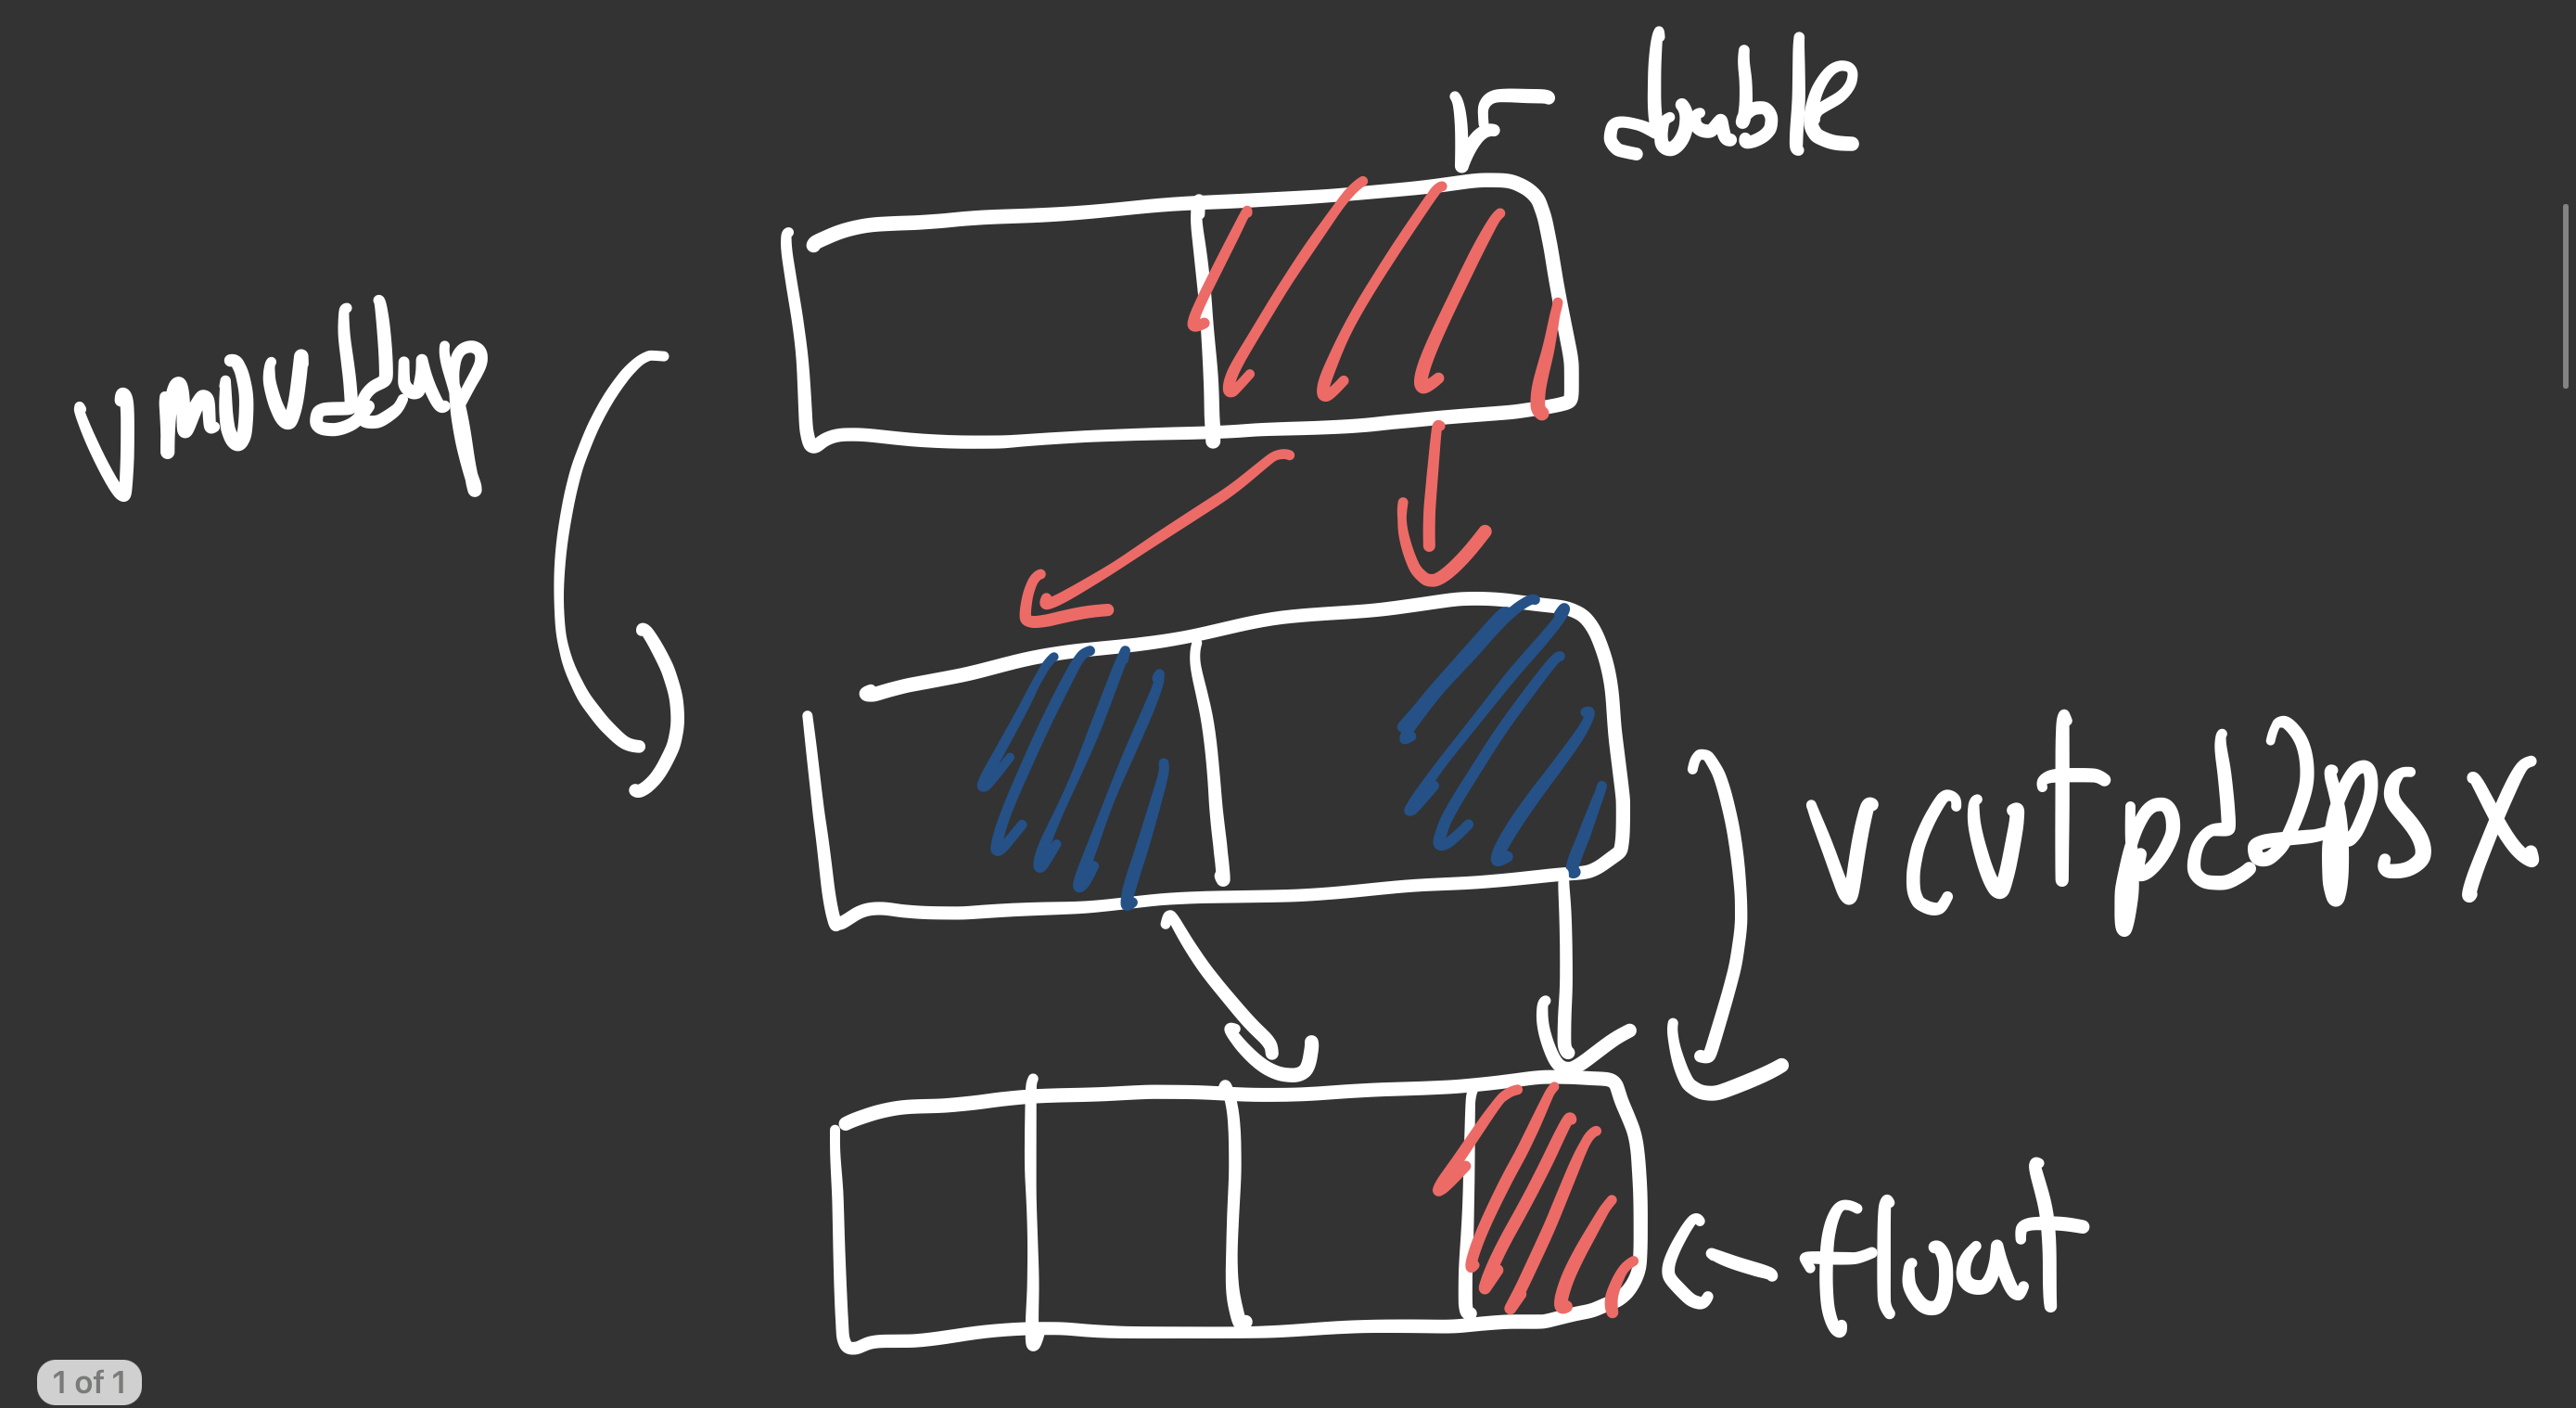 double
vmovddup
vcvtpd2psx
float
1 of 1